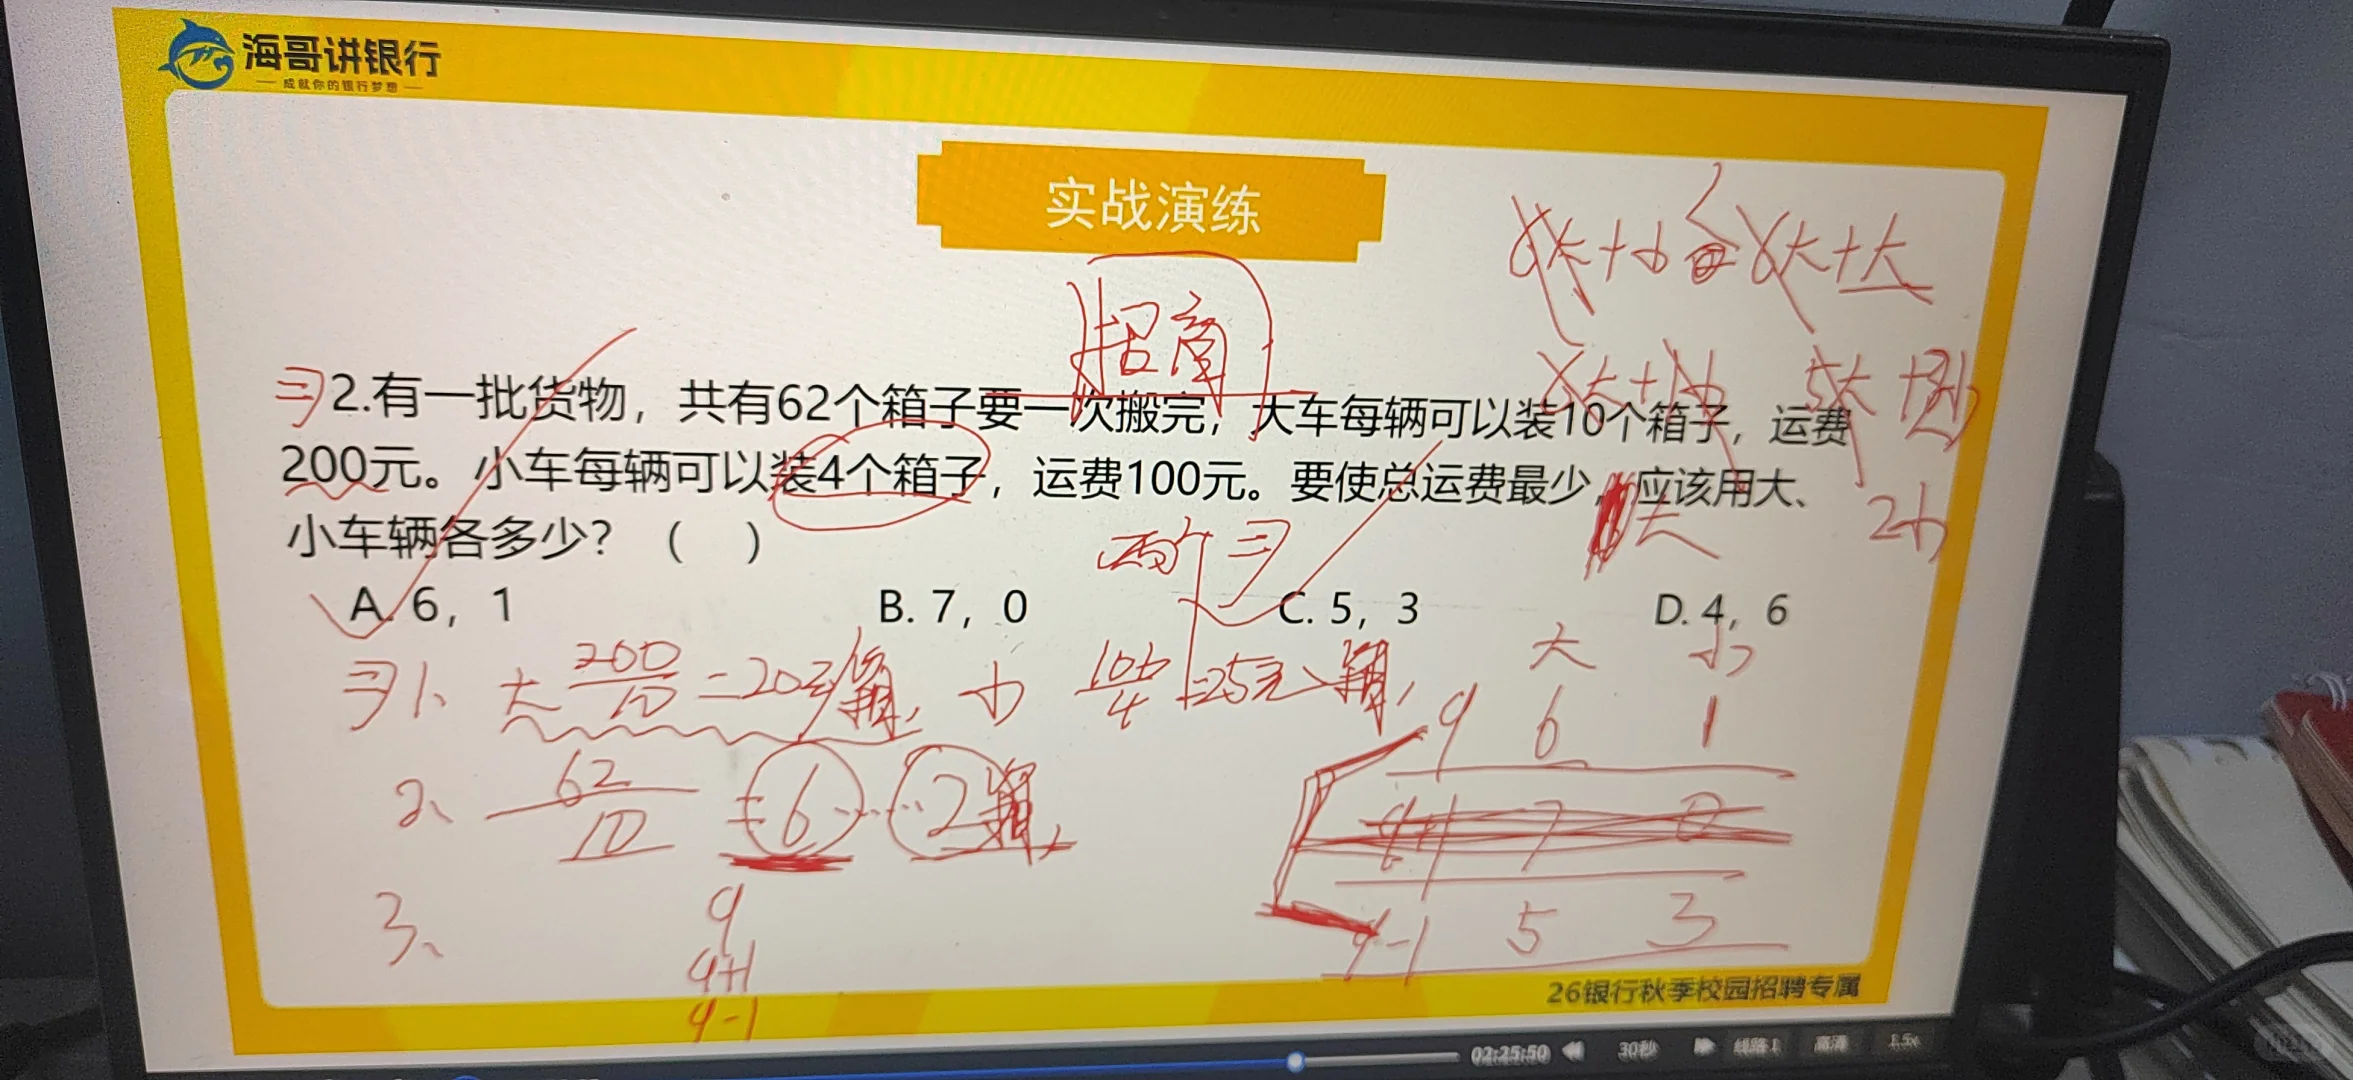 海哥讲银行
成就你的银行梦想
实战演练
招商
2.有一批货物，共有62个箱子要一次搬完，大车每辆可以装10个箱子，运费
200元。小车每辆可以装4个箱子，运费100元。要使总运费最少，应该用大、
小车辆各多少？（ ）
A. 6，1 B. 7，0 C. 5，3 D. 4，6
6大+小 6大+大
6大+1小 5大+3小
大 2小
两个
1、大 200/10=20元/箱，小 100/4=25元/箱，
2、62/10=6……2箱，
3、 q
q+1
q-1
大 小
q 6 1
q+1 7 0
q-1 5 3
26银行秋季校园招聘专属
02:25:50 30秒 线路1 高清 1.5x